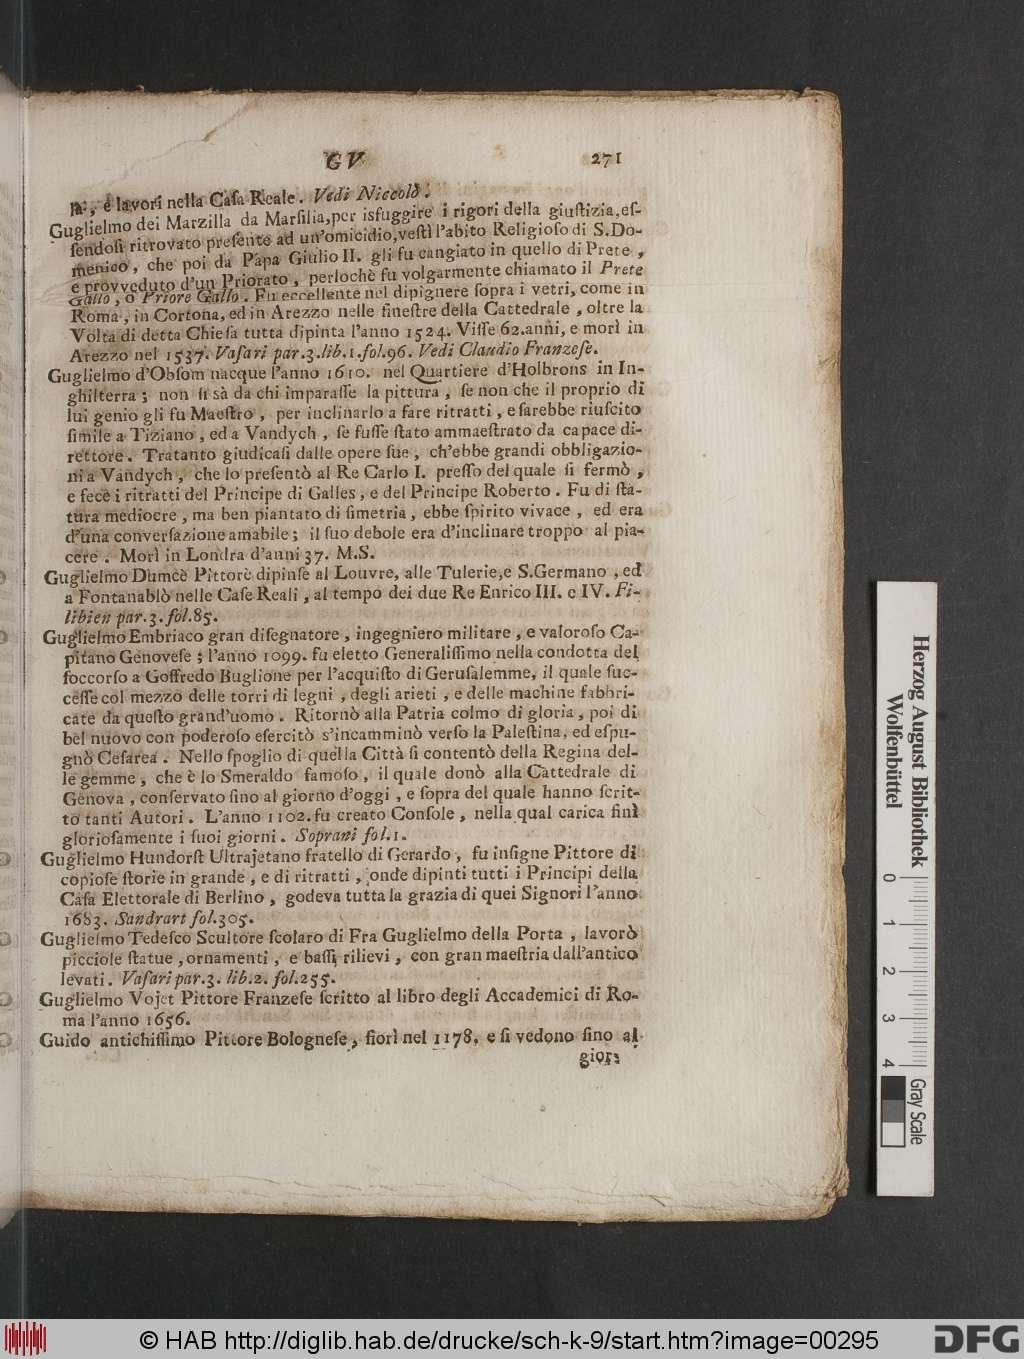 GV 271
na, e lavori nella Caſa Reale. Vedi Niccolò.
Guglielmo dei Marzilla da Marſilia, per isfuggire i rigori della giuſtizia, eſ-
ſendoſi ritrovato preſente ad un'omicidio, veſtì l'abito Religioſo di S. Do-
menico, che poi da Papa Giulio II. gli fu cangiato in quello di Prete,
e provveduto d'un Priorato, perlochè fu volgarmente chiamato il Prete
Gallo, o Priore Gallo. Fu eccellente nel dipignere ſopra i vetri, come in
Roma, in Cortona, ed in Arezzo nelle fineſtre della Cattedrale, oltre la
Volta di detta Chieſa tutta dipinta l'anno 1524. Viſſe 62. anni, e morì in
Arezzo nel 1537. Vaſari par. 3. lib. 1. fol. 96. Vedi Claudio Franzeſe.
Guglielmo d'Obſom nacque l'anno 1610. nel Quartiere d'Holbrons in In-
ghilterra; non ſi sà da chi imparaſſe la pittura, ſe non che il proprio di
lui genio gli fu Maeſtro, per inclinarlo a fare ritratti, e ſarebbe riuſcito
ſimile a Tiziano, ed a Vandych, ſe fuſſe ſtato ammaeſtrato da capace di-
rettore. Tratanto giudicaſi dalle opere ſue, ch'ebbe grandi obbligazio-
ni a Vandych, che lo preſentò al Re Carlo I. preſſo del quale ſi fermò,
e fece i ritratti del Principe di Galles, e del Principe Roberto. Fu di ſta-
tura mediocre, ma ben piantato di ſimetria, ebbe ſpirito vivace, ed era
d'una converſazione amabile; il ſuo debole era d'inclinare troppo al pia-
cere. Morì in Londra d'anni 37. M.S.
Guglielmo Dumcè Pittore dipinſe al Louvre, alle Tulerie, e S. Germano, ed
a Fontanablò nelle Caſe Reali, al tempo dei due Re Enrico III. e IV. Fi-
libien par. 3. fol. 85.
Guglielmo Embriaco gran diſegnatore, ingegniero militare, e valoroſo Ca-
pitano Genoveſe; l'anno 1099. fu eletto Generaliſſimo nella condotta del
ſoccorſo a Goffredo Buglione per l'acquiſto di Geruſalemme, il quale ſuc-
ceſſe col mezzo delle torri di legni, degli arieti, e delle machine fabbri-
cate da queſto grand'uomo. Ritornò alla Patria colmo di gloria, poi di
bel nuovo con poderoſo eſercitò s'incamminò verſo la Paleſtina, ed eſpu-
gnò Ceſarea. Nello ſpoglio di quella Città ſi contentò della Regina del-
le gemme, che è lo Smeraldo famoſo, il quale donò alla Cattedrale di
Genova, conſervato ſino al giorno d'oggi, e ſopra del quale hanno ſcrit-
to tanti Autori. L'anno 1102. fu creato Conſole, nella qual carica finì
glorioſamente i ſuoi giorni. Soprani fol. 1.
Guglielmo Hundorſt Ultrajetano fratello di Gerardo, fu inſigne Pittore di
copioſe ſtorie in grande, e di ritratti, onde dipinti tutti i Principi della
Caſa Elettorale di Berlino, godeva tutta la grazia di quei Signori l'anno
1683. Sandrart fol. 305.
Guglielmo Tedeſco Scultore ſcolaro di Fra Guglielmo della Porta, lavorò
picciole ſtatue, ornamenti, e baſſi rilievi, con gran maeſtria dall'antico
levati. Vaſari par. 3. lib. 2. fol. 255.
Guglielmo Vojet Pittore Franzeſe ſcritto al libro degli Accademici di Ro-
ma l'anno 1656.
Guido antichiſſimo Pittore Bologneſe, fiorì nel 1178, e ſi vedono ſino al
gior-
Herzog August Bibliothek
Wolfenbüttel
0 1 2 3 4
Gray Scale
© HAB http://diglib.hab.de/drucke/sch-k-9/start.htm?image=00295
DFG